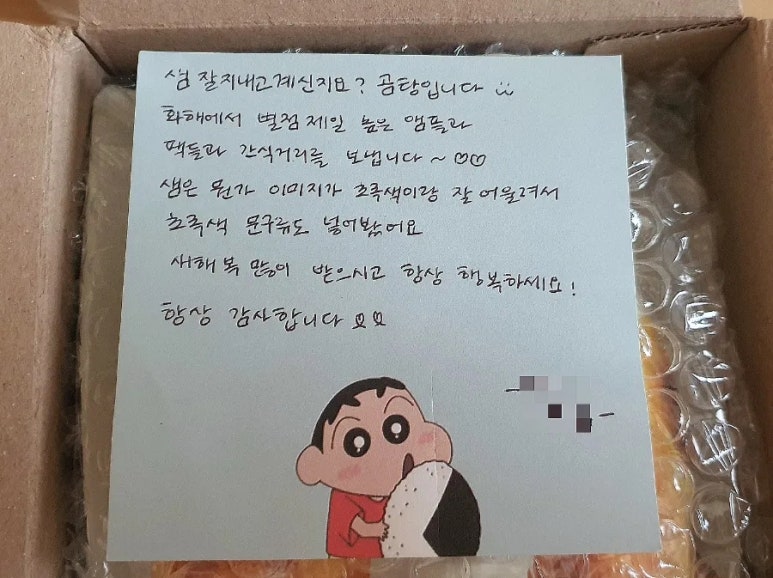 샘 잘지내고계신지요? 곰탕입니다
화해에서 별점 제일 높은 앰플과
팩들과 간식거리를 보냅니다~♡♡
샘은 뭔가 이미지가 초록색이랑 잘어울려서
초록색 문구류도 넣어봤어요
새해 복 많이 받으시고 항상 행복하세요!
항상 감사합니다